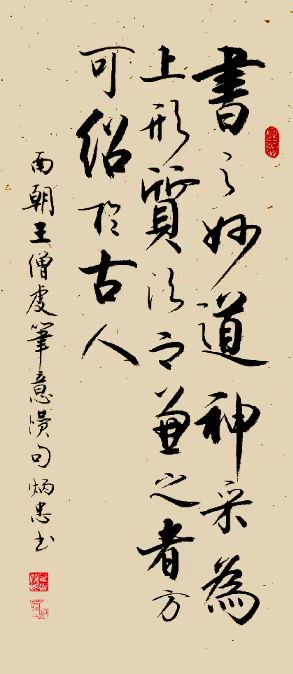 書之妙道神采為
上形質次之兼之者方
可紹於古人
南朝王僧虔筆意讚句炳忠书